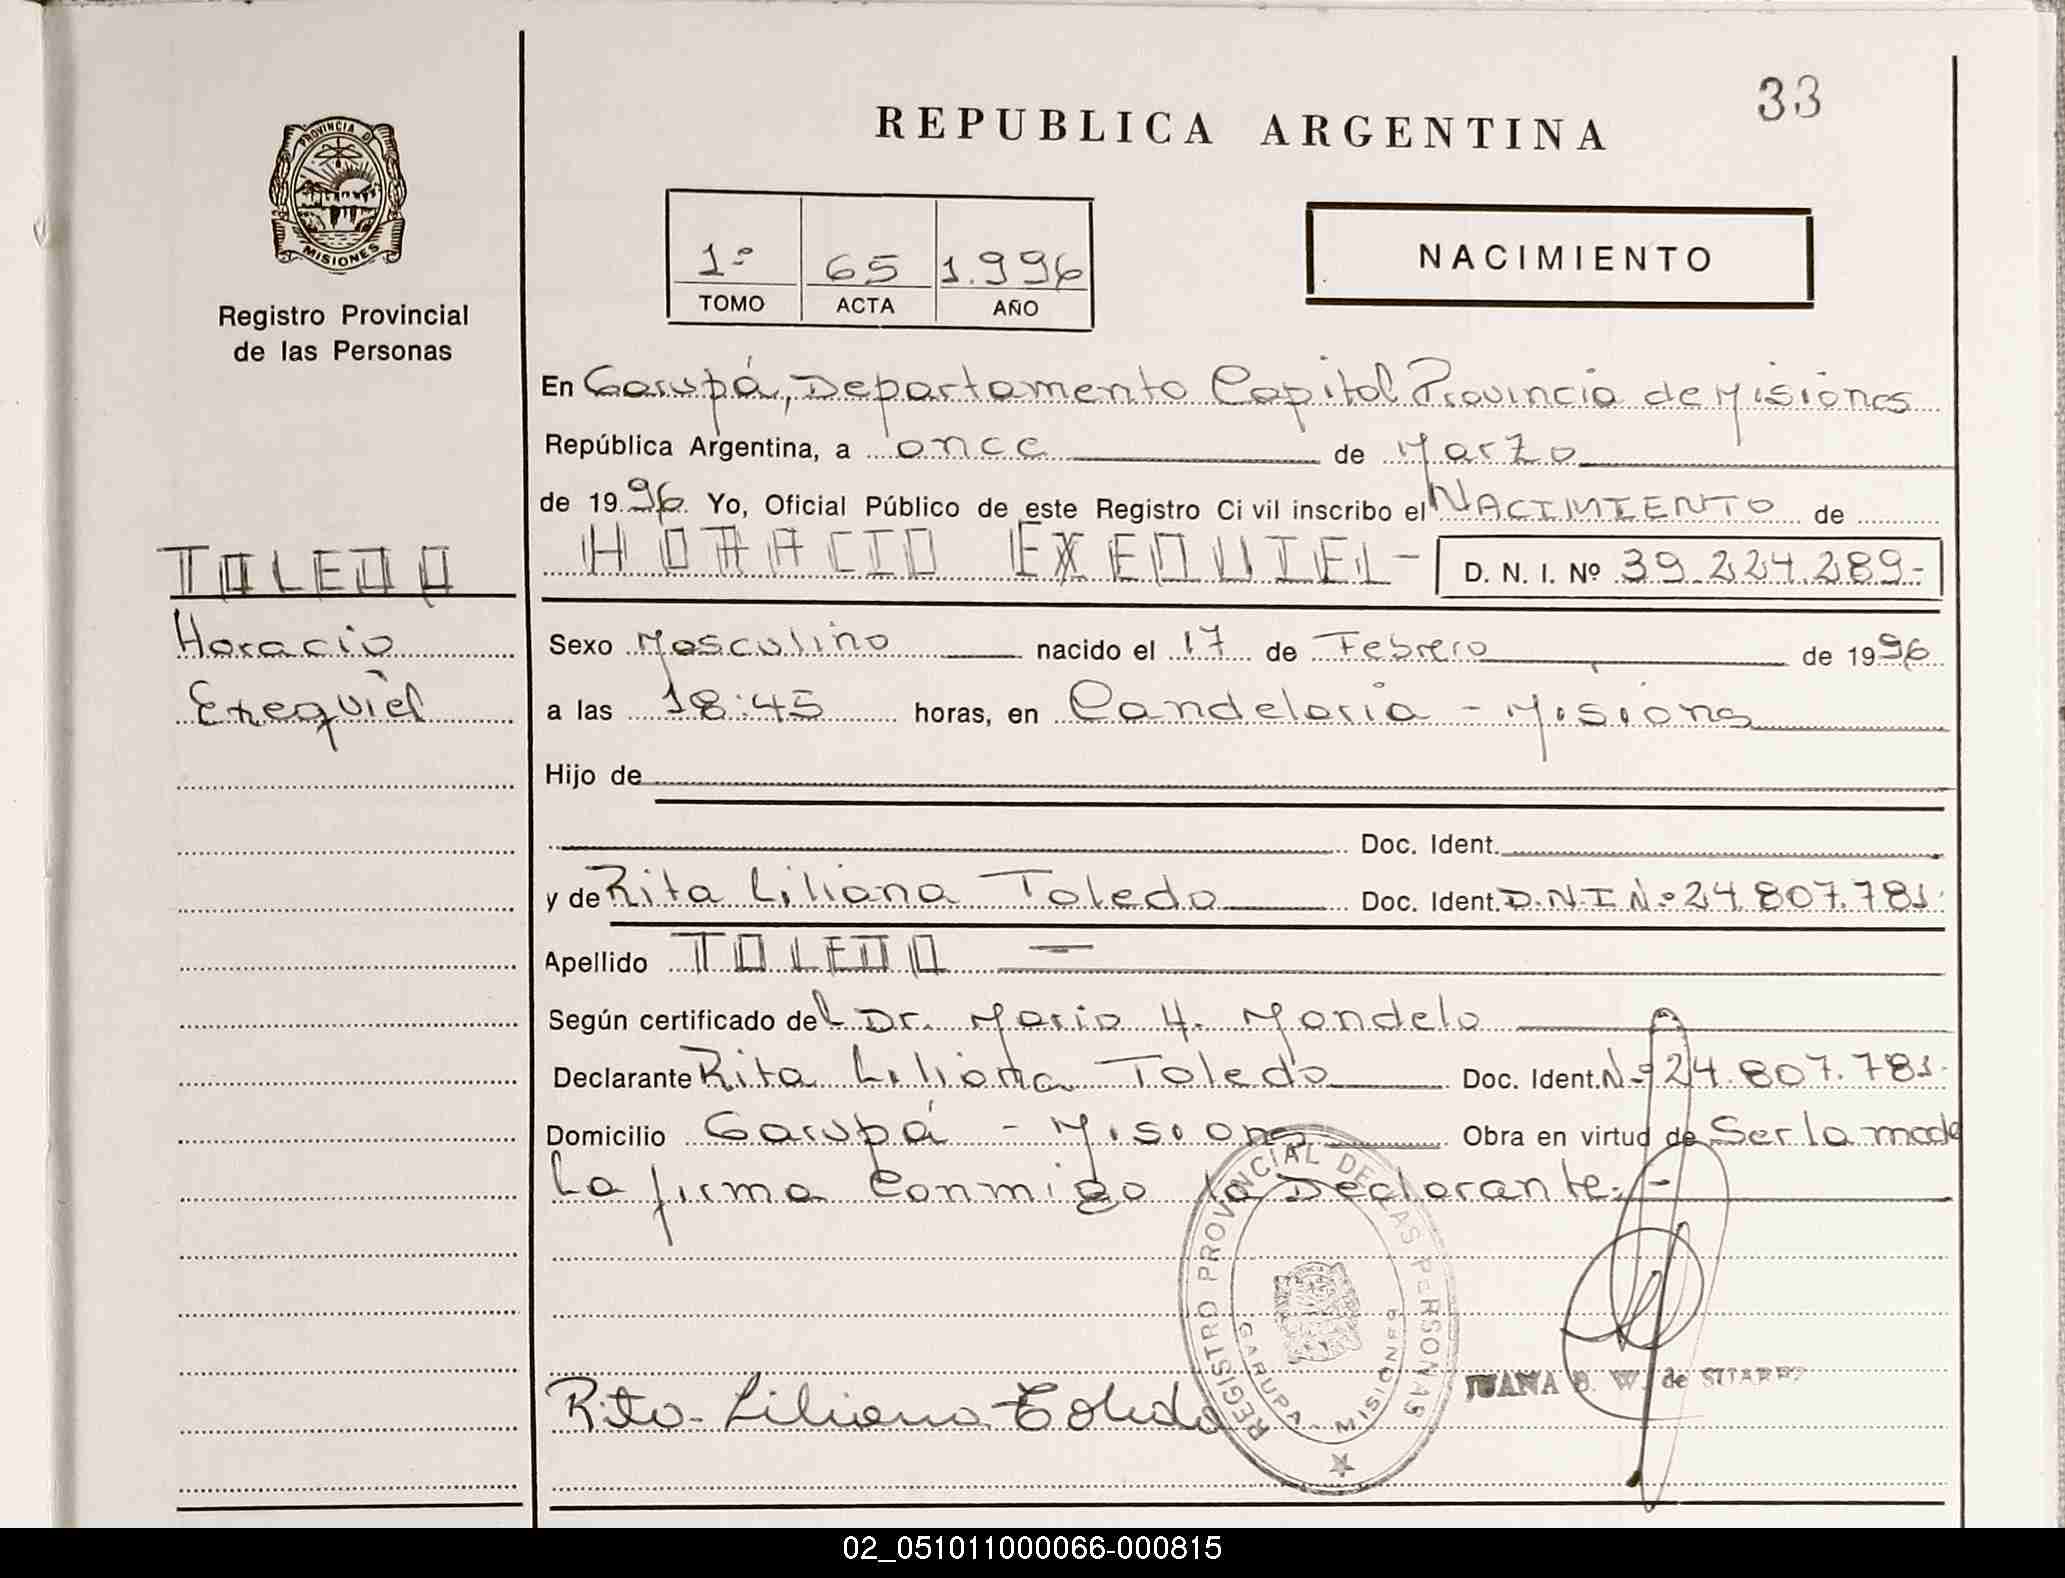 33
REPUBLICA ARGENTINA
PROVINCIA DE
MISIONES
Registro Provincial
de las Personas
1º 65 1.996
TOMO ACTA AÑO
NACIMIENTO
En Garupá, Departamento Capital Provincia de Misiones
República Argentina, a once de Marzo
de 1996 Yo, Oficial Público de este Registro Civil inscribo el NACIMIENTO de
HORACIO EXEQUIEL - D. N. I. Nº 39.224.289-
TOLEDO
Horacio
Exequiel
Sexo Masculino nacido el 17 de Febrero de 1996
a las 18:45 horas, en Candelaria - Misions
Hijo de
Doc. Ident.
y de Rita Liliana Toledo Doc. Ident. D.N.I Nº 24.807.781.
Apellido TOLEDO -
Según certificado del Dr. Mario H. Mondelo
Declarante Rita Liliana Toledo Doc. Ident. Nº 24.807.781.
Domicilio Garupá - Misions Obra en virtud de Ser la made
La firma Conmigo la Declarante. -
REGISTRO PROVINCIAL DE LAS PERSONAS
GARUPA - MISIONES
Rita Liliana Toledo
JUANA B. W. de SUAREZ
02_051011000066-000815